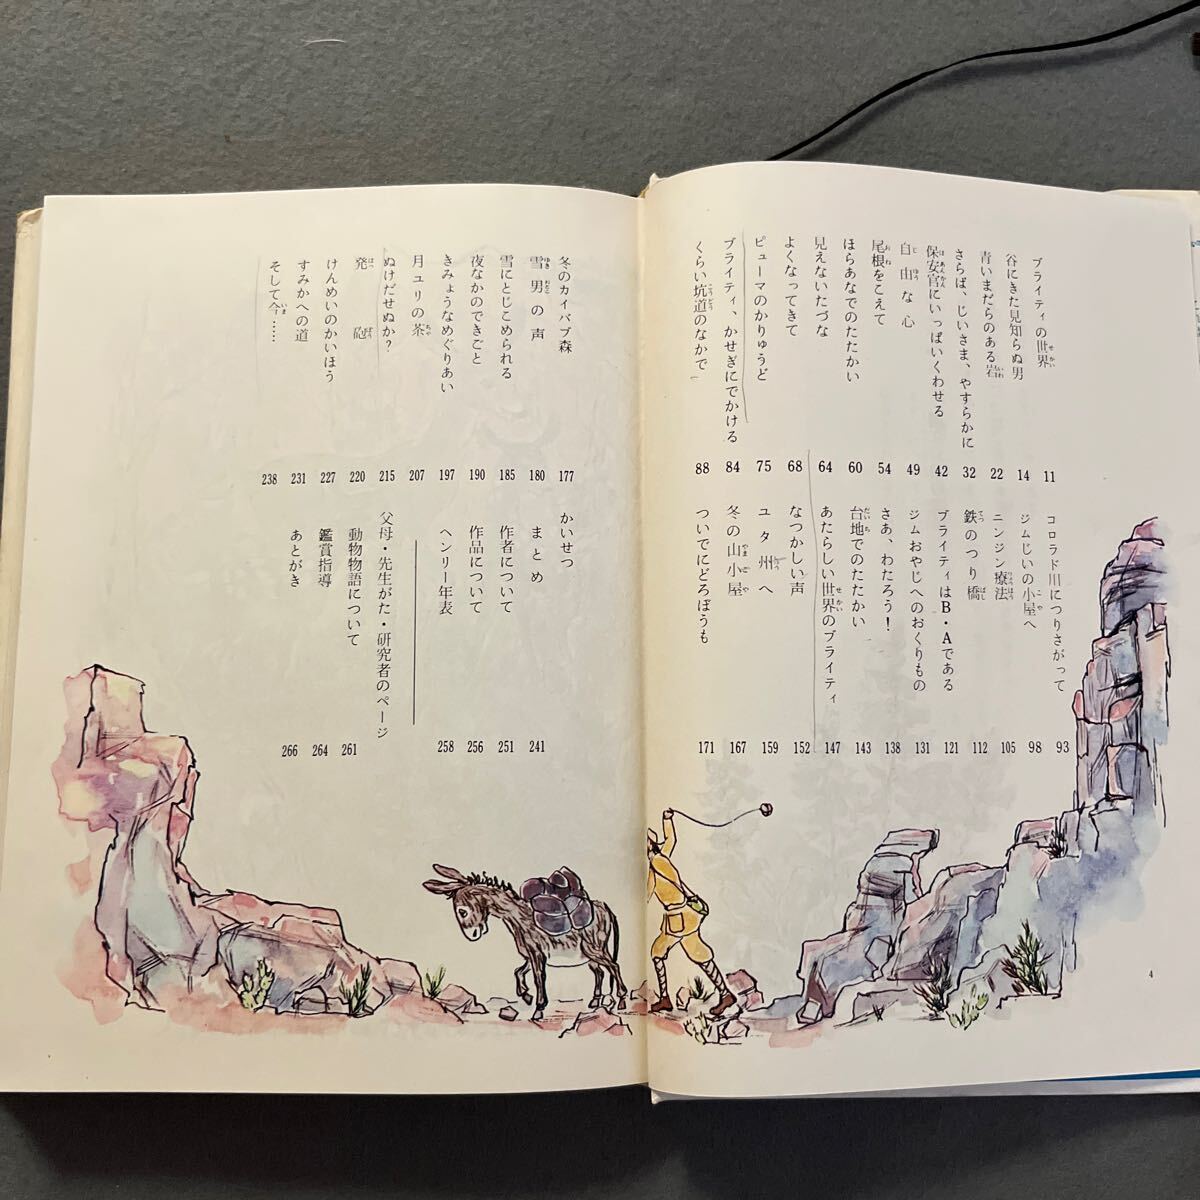 ブライティの世界 11
谷にきた見知らぬ男 14
青いまだらのある岩 22
さらば、じいさま、やすらかに 32
保安官にいっぱいくわせる 42
自由な心 49
尾根をこえて 54
ほらあなでのたたかい 60
見えないたづな 64
よくなってきて 68
ピューマのかりゅうど 75
ブライティ、かせぎにでかける 84
くらい坑道のなかで 88
コロラド川につりさがって 93
ジムじいの小屋へ 98
ニンジン療法 105
鉄のつり橋 112
ブライティはB・Aである 121
ジムおやじへのおくりもの 131
さあ、わたろう! 138
台地でのたたかい 143
あたらしい世界のブライティ 147
なつかしい声 152
ユタ州へ 159
冬の山小屋 167
ついでにどろぼうも 171
4
冬のカイバブ森 177
雪男の声 180
雪にとじこめられる 185
夜なかのできごと 190
きみょうなめぐりあい 197
月ユリの茶 207
ぬけだせぬか? 215
発砲 220
けんめいのかいほう 227
すみかへの道 231
そして今…… 238
かいせつ
まとめ 241
作者について 251
作品について 256
ヘンリー年表 258
父母・先生がた・研究者のページ
動物物語について 261
鑑賞指導 264
あとがき 266